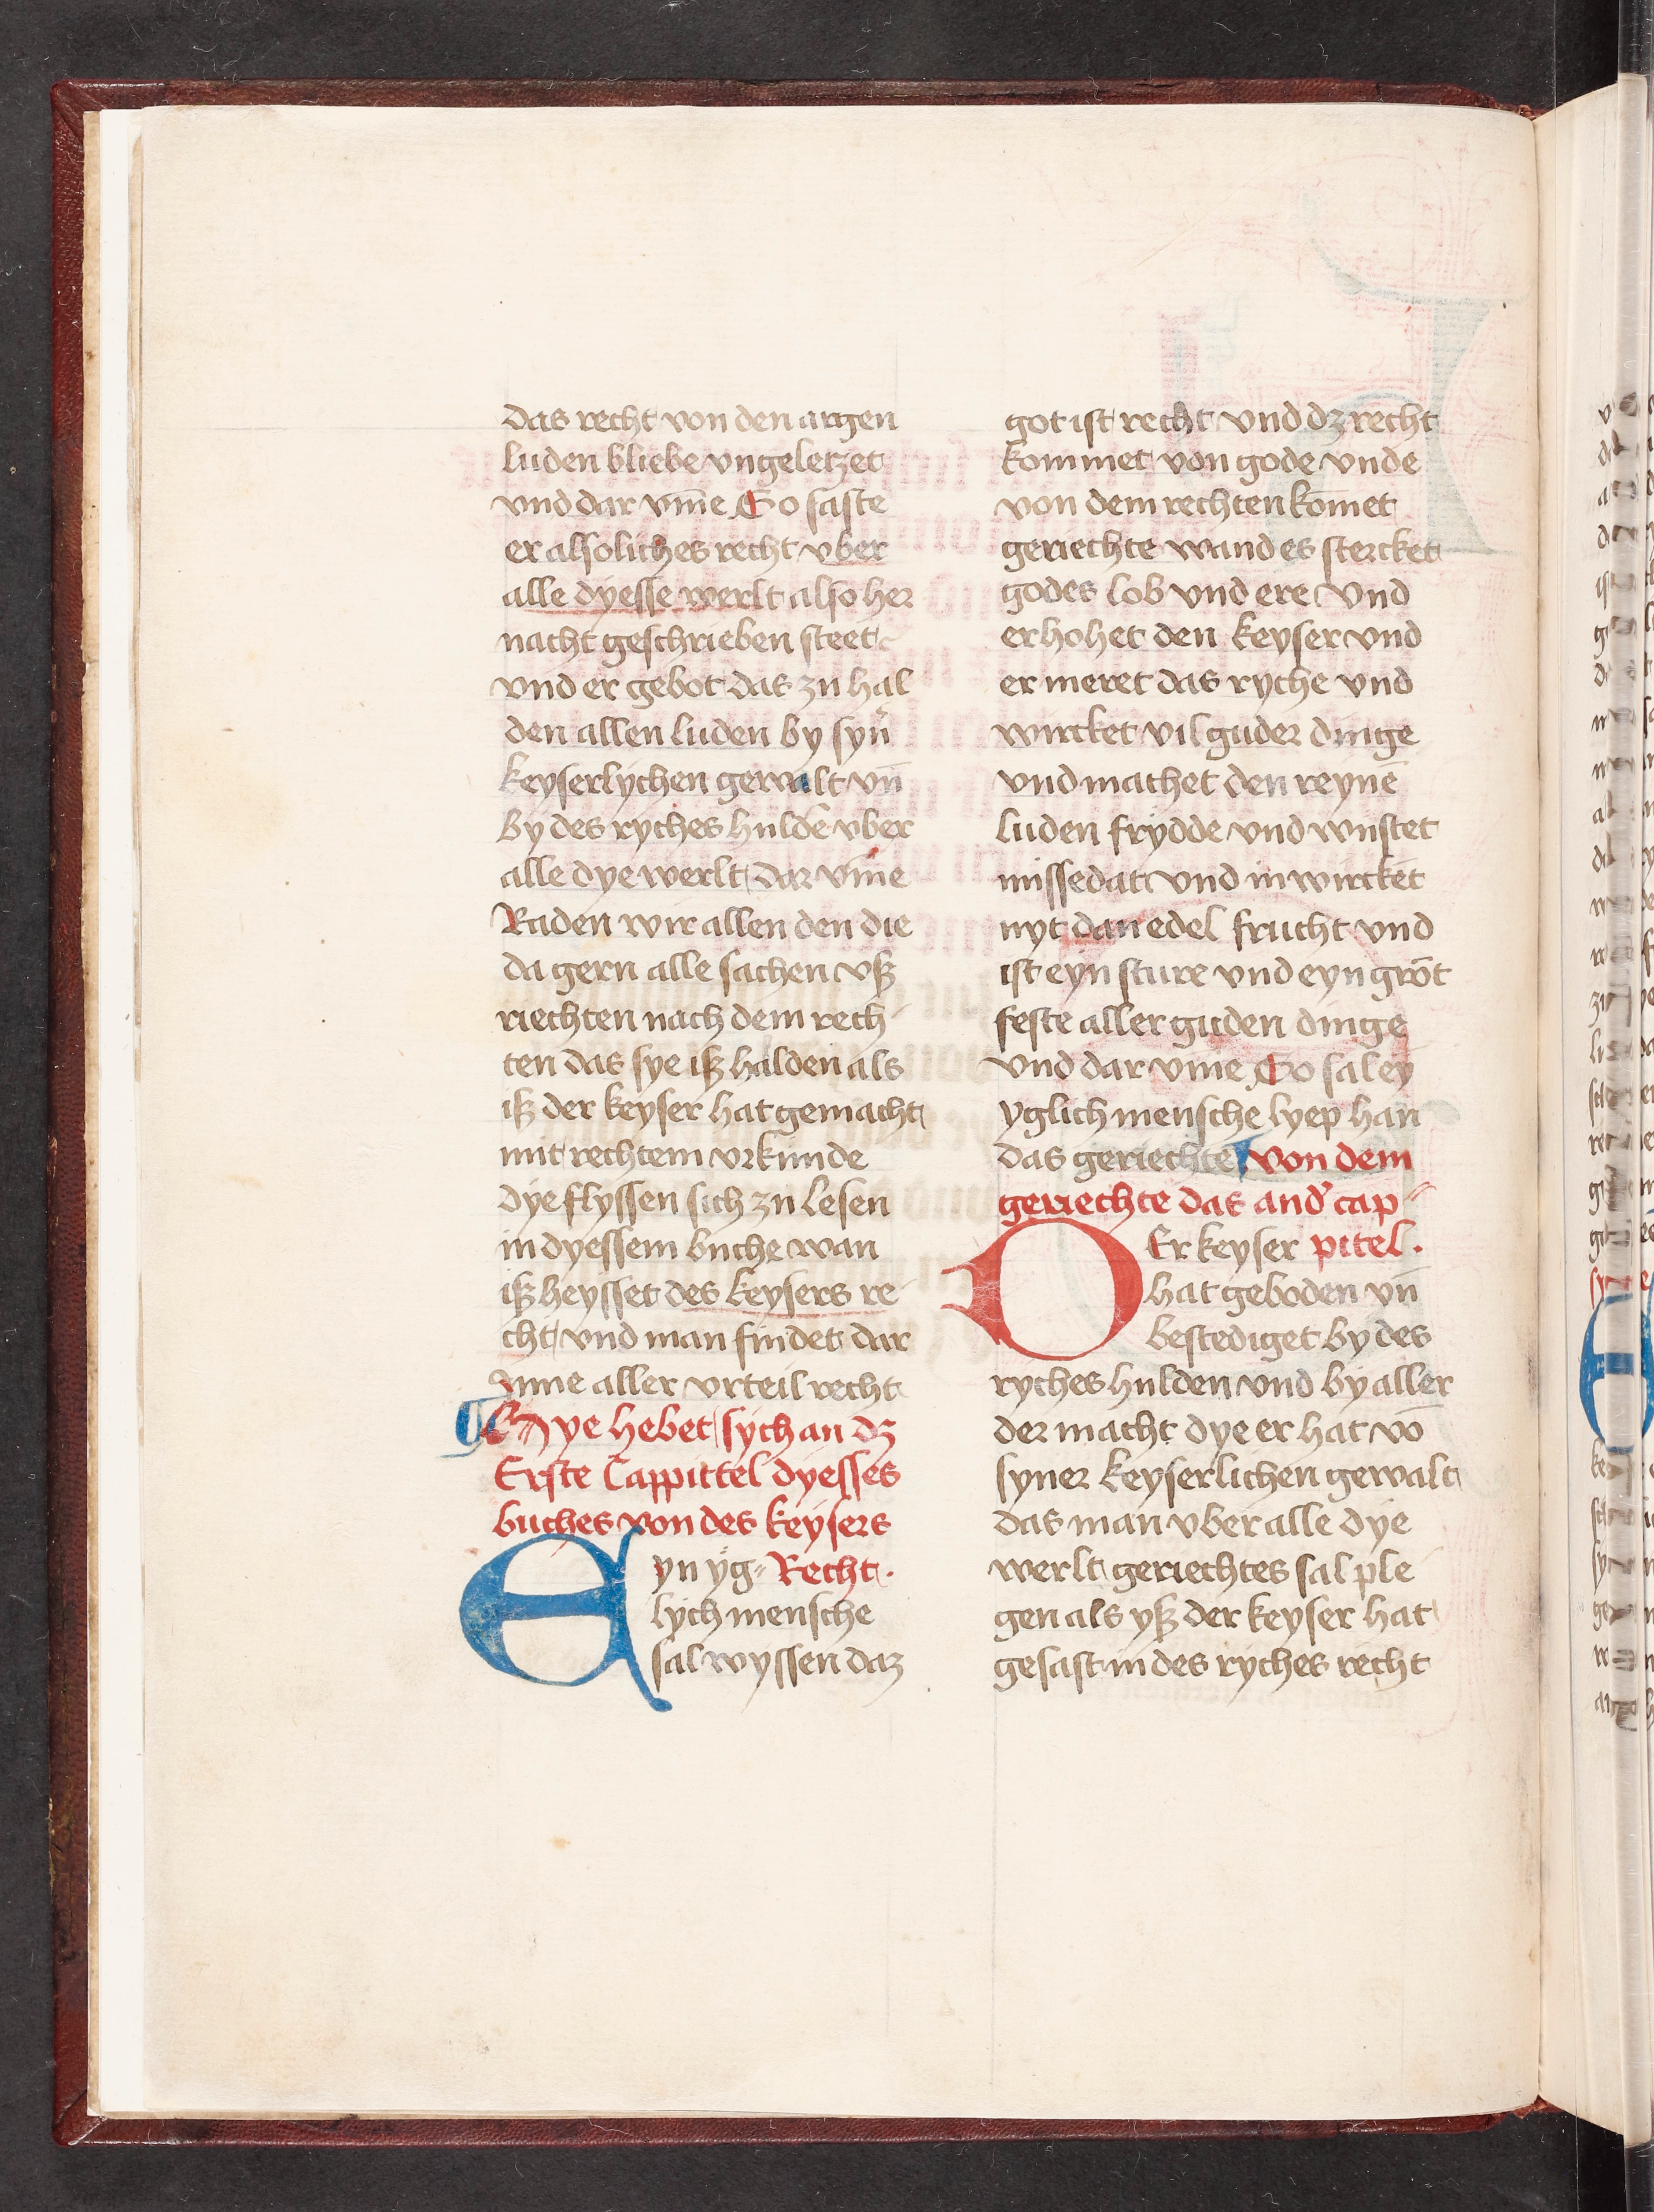 das recht von den argen
luden bliebe vngeletzet
vnd dar vm̄e So saste
er alsoliches recht vber
alle dyesse werlt also her
nacht geschrieben steet
vnd er gebot das zu hal
den allen luden by syn̄
keyserlychen gewalt vn̄
by des ryches hulde vber
alle dye werlt dar vm̄e
Raden wir allen den die
da gern alle sachen vß
riechten nach dem rech
ten das sye iß halden als
iß der keyser hat gemacht
mit rechtem vrkunde
dye flyssen sich zu lesen
in dyessem buche wan
iß heysset des keysers re
cht vnd man findet dar
Inne aller vrteil recht
¶ Hye hebet sych an dz
Erste Cappittel dyesses
buches von des keysers
Eyn yg⸗ Recht.
lych mensche
sal wyssen daz
got ist recht vnd dz recht
kommet von gode vnde
von dem rechten kōmet
geriechte wand es stercket
godes lob vnd ere vnd
erhohet den keyser vnd
er meret das ryche vnd
wircket vil guder dinge
vnd machet den reynē
luden frydde vnd wustet
missedat vnd in wircket
nyt dan edel frucht vnd
ist eyn sture vnd eyn grōt
feste aller guden dinge
vnd dar vm̄e So sal ey
yglich mensche lyep han
das geriechte ¶ von dem
geriechte das and' cap⸗
DEr keyser pitel.
hat geboden vn̄
bestediget by des
ryches hulden vnd by aller
der macht dye er hat vō
syner keyserlichen gewalt
das man vber alle dye
werlt geriechtes sal ple
gen als yß der keyser hat
gesast in des ryches recht